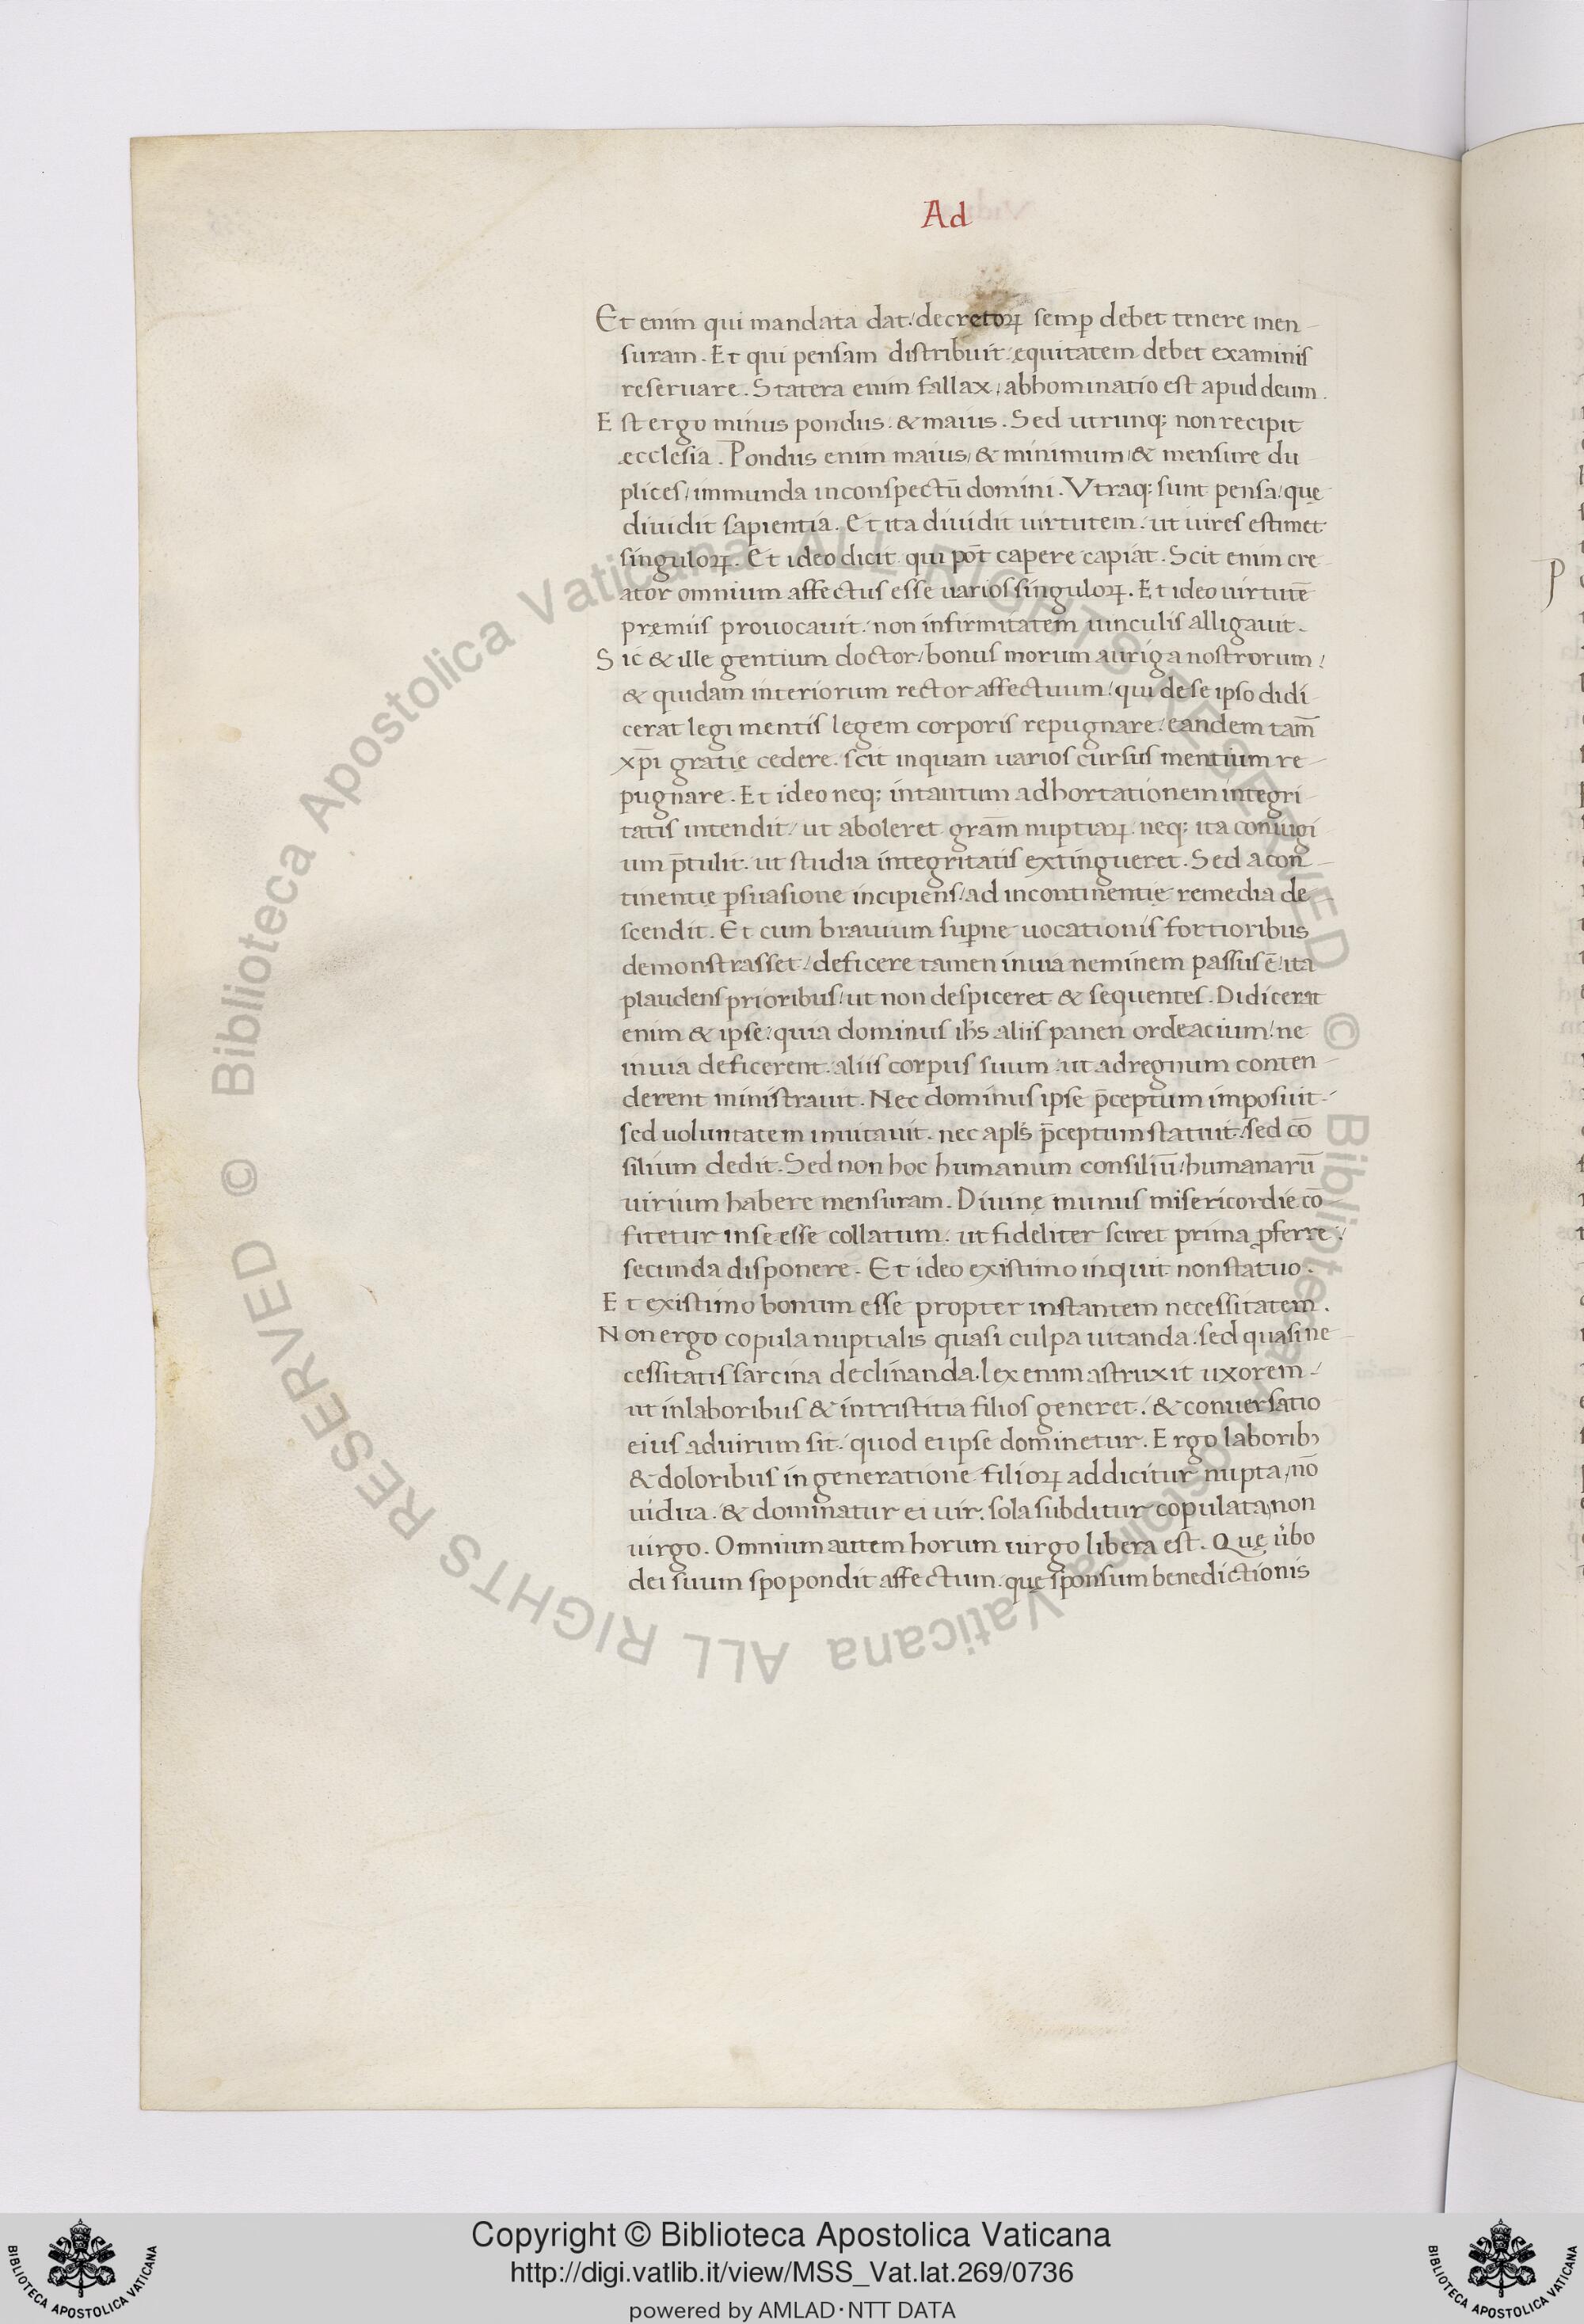 Ad
Et enim qui mandata dat. decretoꝝ semꝑ debet tenere men-
suram. Et qui pensam distribuit. equitatem debet examinis
reseruare. Statera enim fallax, abhominatio est apud deum.
Est ergo minus pondus. & maius. Sed utrunq; non recipit
ecclesia. Pondus enim maius, & minimum, & mensure du
plices, immunda inconspectū domini. Vtraq; sunt pensa, quę
diuidit sapientia. Et ita diuidit uirtutem. ut uires estimet
singuloꝝ. Et ideo dicit. qui pōt capere capiat. Scit enim cre
ator omnium affectus esse uarios singuloꝝ. Et ideo uirtutē
pręmiis prouocauit. non infirmitatem uinculis alligauit.
Sic & ille gentium doctor, bonus morum auriga nostrorum,
& quidam interiorum rector affectuum, qui de se ipso didi-
cerat legi mentis legem corporis repugnare, eandem tam̄
xp̄i gratię cedere. scit inquam uarios cursus mentium re-
pugnare. Et ideo neq; intantum adhortationem integri-
tatis intendit, ut aboleret gram̄ nuptiaꝝ. neq; ita coniugi
um p̄tulit. ut studia integritatis extingueret. Sed a con-
tinentię ꝑsuasione incipiens, ad incontinentię remedia de-
scendit. Et cum brauium suꝑne uocationis fortioribus
demonstrasset, deficere tamen inuia neminem passus ē, ita
plaudens prioribus, ut non despiceret & sequentes. Didicerat
enim & ipse, quia dominus ih̄s aliis panen ordeacium, ne
inuia deficerent. aliis corpus suum ut adregnum conten-
derent ministrauit. Nec dominus ipse p̄ceptum imposuit.
sed uoluntatem inuitauit. nec apl̄s p̄ceptum statuit. sed cō
silium dedit. Sed non hoc humanum consiliū, humanarū
uirium habere mensuram. Diuinę munus misericordię cō
fitetur inse esse collatum. ut fideliter sciret prima ꝓferre,
secunda disponere. Et ideo existimo inquit non statuo.
Et existimo bonum esse propter instantem necessitatem.
Non ergo copula nuptialis quasi culpa uitanda. sed quasi ne-
cessitatis sarcina declinanda. lex enim astruxit uxorem
ut inlaboribus & intristitia filios generet. & conuersatio
eius aduirum sit. quod ei ipse dominetur. Ergo laborib;
& doloribus in generatione filioꝝ addicitur nupta, nō
uidua. & dominatur ei uir. sola subditur copulata, non
uirgo. Omnium autem horum uirgo libera est. Quę u̇bo
dei suum spopondit affectum. quę sponsum benedictionis
Copyright © Biblioteca Apostolica Vaticana
http://digi.vatlib.it/view/MSS_Vat.lat.269/0736
powered by AMLAD·NTT DATA